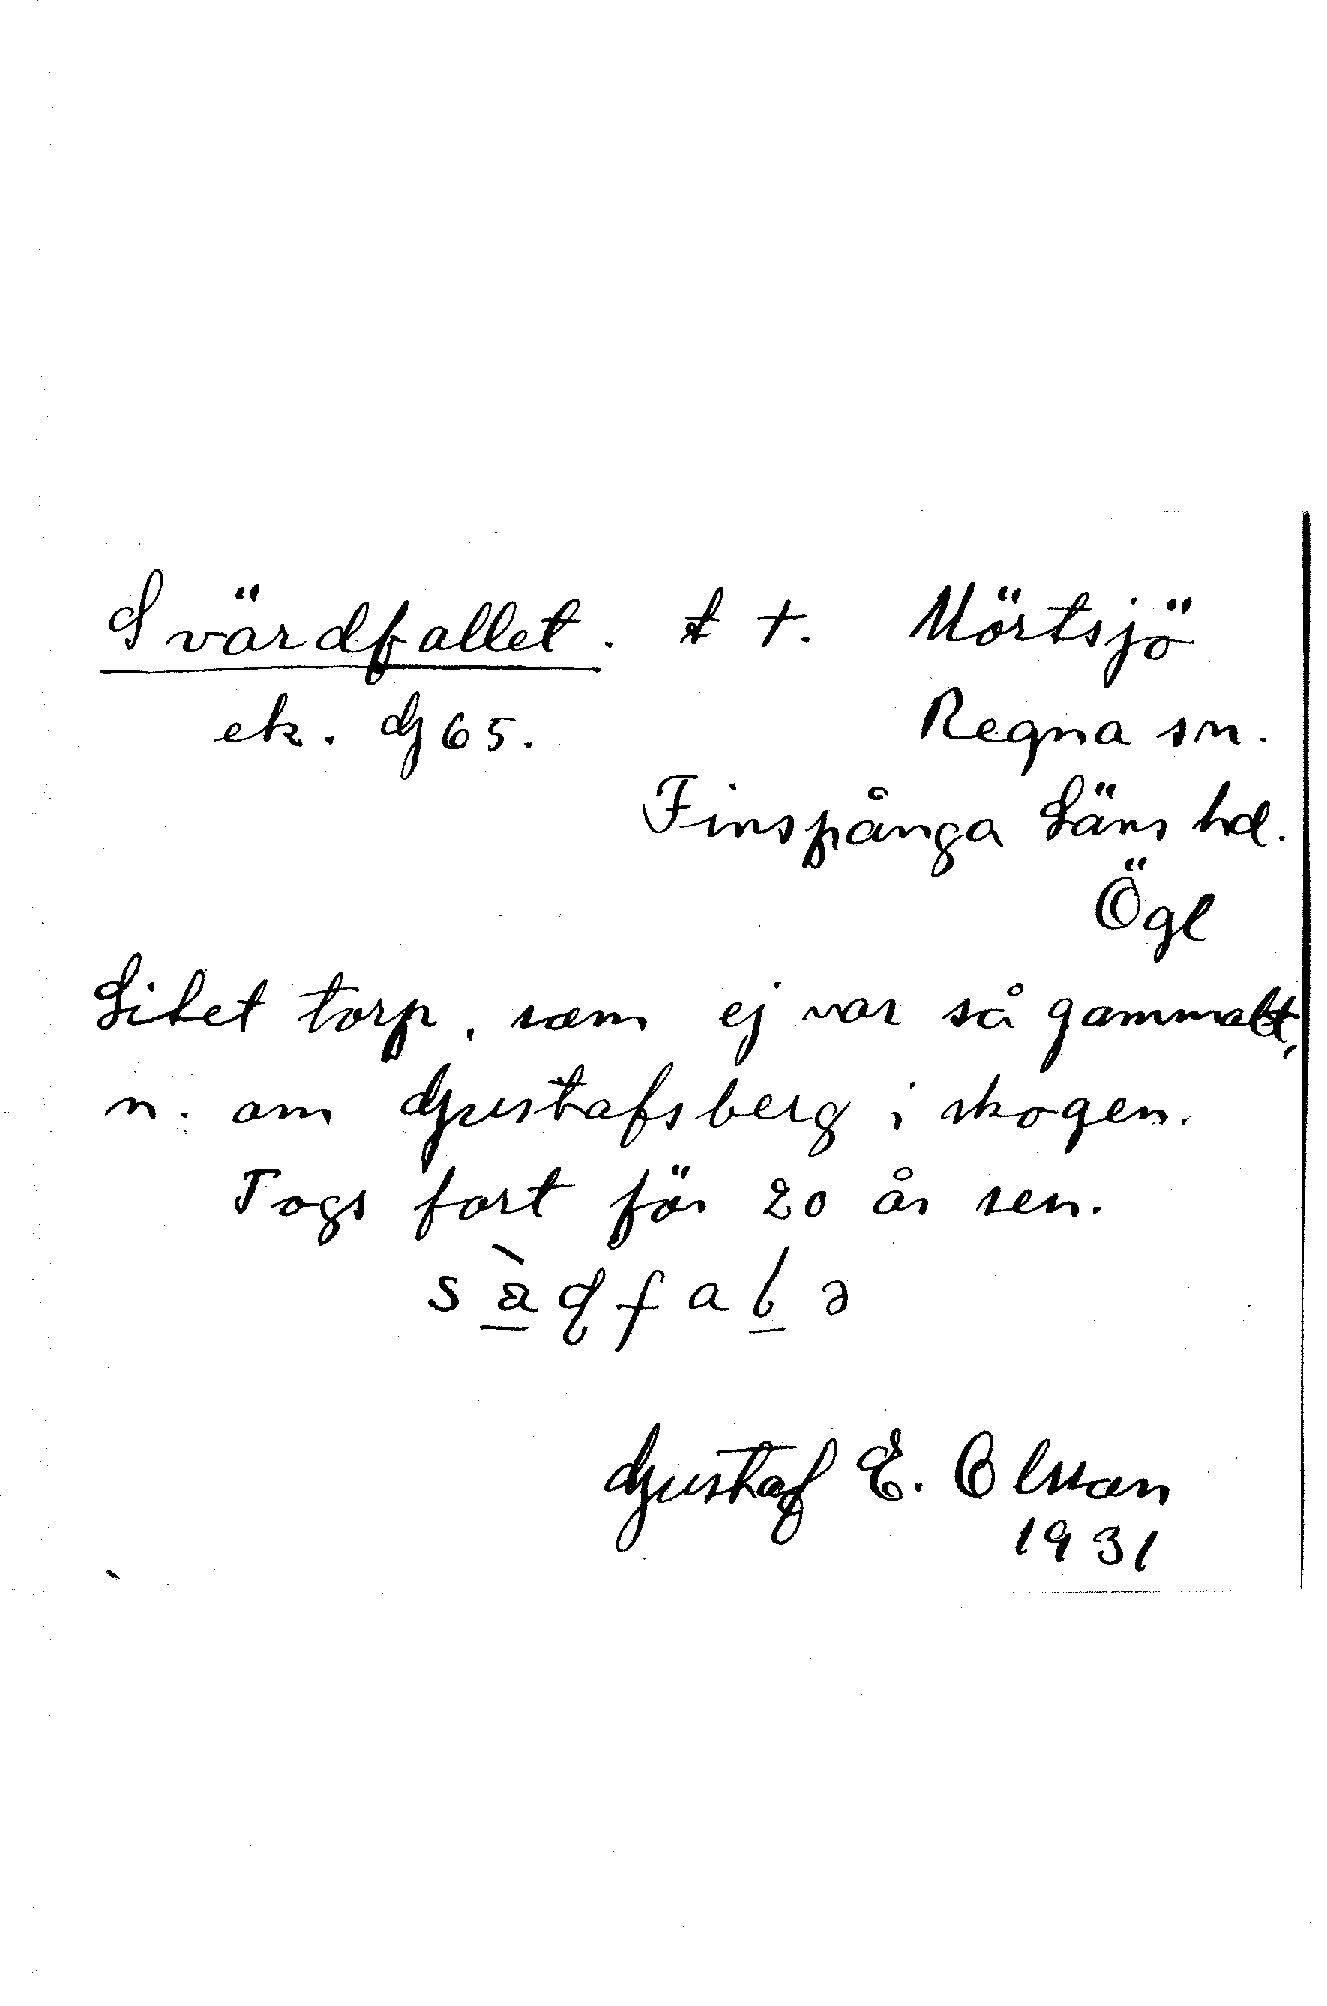 Svärdfallet. t †. Mörtsjö
ek. G 65. Regna sn.
Finspånga Läns hd.
Ögl
Litet torp, som ej var så gammalt,
n. om Gustafsberg i skogen.
Togs fort för 20 år sen.
Gustaf E. Olsson
1931